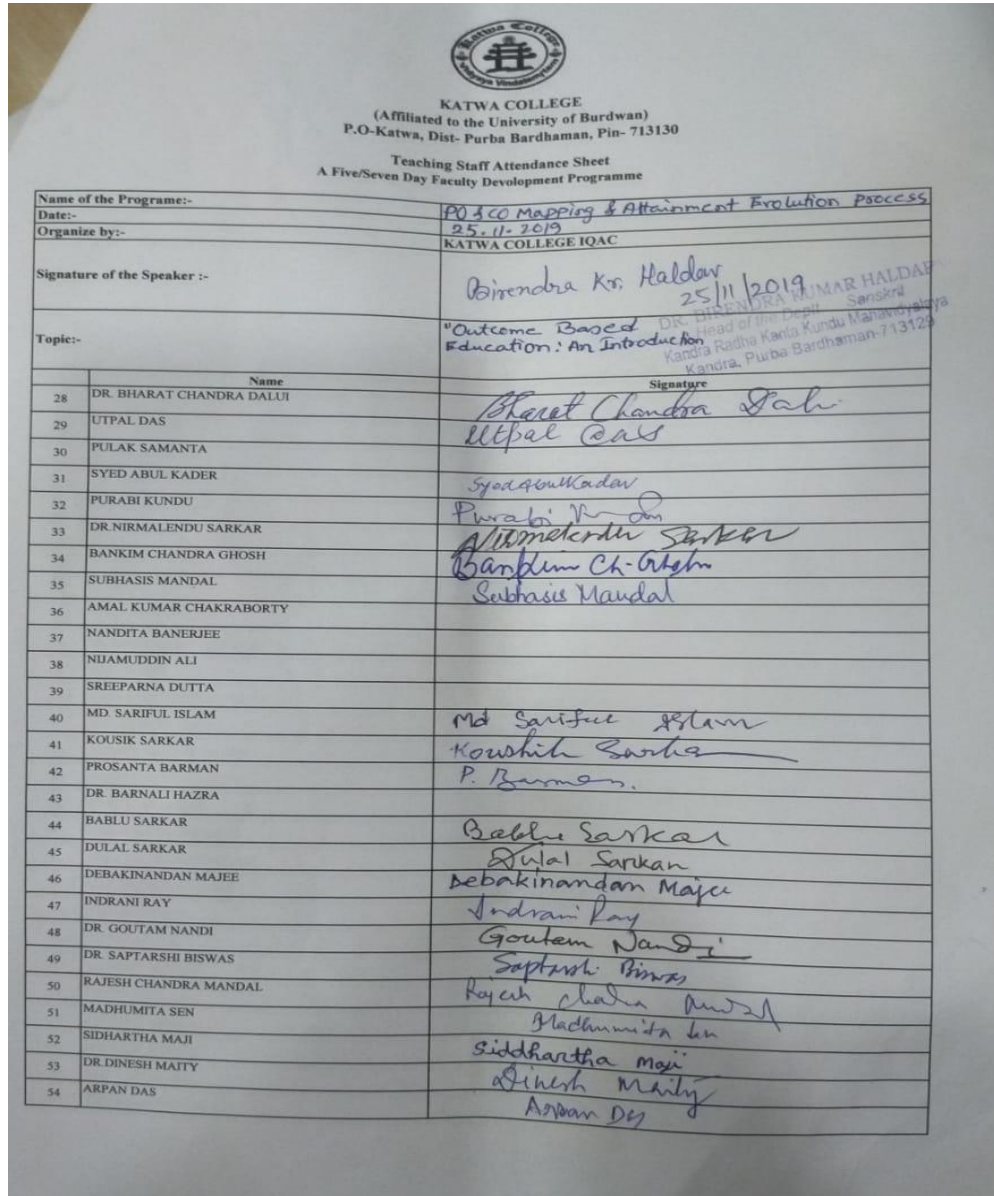 Katwa College
Vidyaya Vindatemrytam
KATWA COLLEGE
(Affiliated to the University of Burdwan)
P.O-Katwa, Dist- Purba Bardhaman, Pin- 713130
Teaching Staff Attendance Sheet
A Five/Seven Day Faculty Devolopment Programme
Name of the Programe:- PO & CO Mapping & Attainment Evolution Process
Date:- 25.11.2019
Organize by:- KATWA COLLEGE IQAC
Signature of the Speaker :- Birendra Kr. Haldar
25/11/2019
DR. BIRENDRA KUMAR HALDAR
Head of the Deptt. Sanskrit
Kandra Radha Kanta Kundu Mahavidyalaya
Kandra, Purba Bardhaman-713129
Topic:- "Outcome Based
Education: An Introduction
Name Signature
28 DR. BHARAT CHANDRA DALUI Bharat Chandra Dalui
29 UTPAL DAS Utpal Das
30 PULAK SAMANTA
31 SYED ABUL KADER Syed Abul Kader
32 PURABI KUNDU Purabi Kundu
33 DR.NIRMALENDU SARKAR Nirmalendu Sarkar
34 BANKIM CHANDRA GHOSH Bankim Ch-Ghosh
35 SUBHASIS MANDAL Subhasis Mandal
36 AMAL KUMAR CHAKRABORTY
37 NANDITA BANERJEE
38 NIJAMUDDIN ALI
39 SREEPARNA DUTTA
40 MD. SARIFUL ISLAM Md Sariful Islam
41 KOUSIK SARKAR Koushik Sarkar
42 PROSANTA BARMAN P. Barman.
43 DR. BARNALI HAZRA
44 BABLU SARKAR Bablu Sarkar
45 DULAL SARKAR Dulal Sarkar
46 DEBAKINANDAN MAJEE Debakinandan Majee
47 INDRANI RAY Indrani Ray
48 DR. GOUTAM NANDI Goutam Nandi
49 DR. SAPTARSHI BISWAS Saptarshi Biswas
50 RAJESH CHANDRA MANDAL Rajesh Chandra Mandal
51 MADHUMITA SEN Madhumita Sen
52 SIDHARTHA MAJI Siddhartha Maji
53 DR.DINESH MAITY Dinesh Maity
54 ARPAN DAS Arpan Das